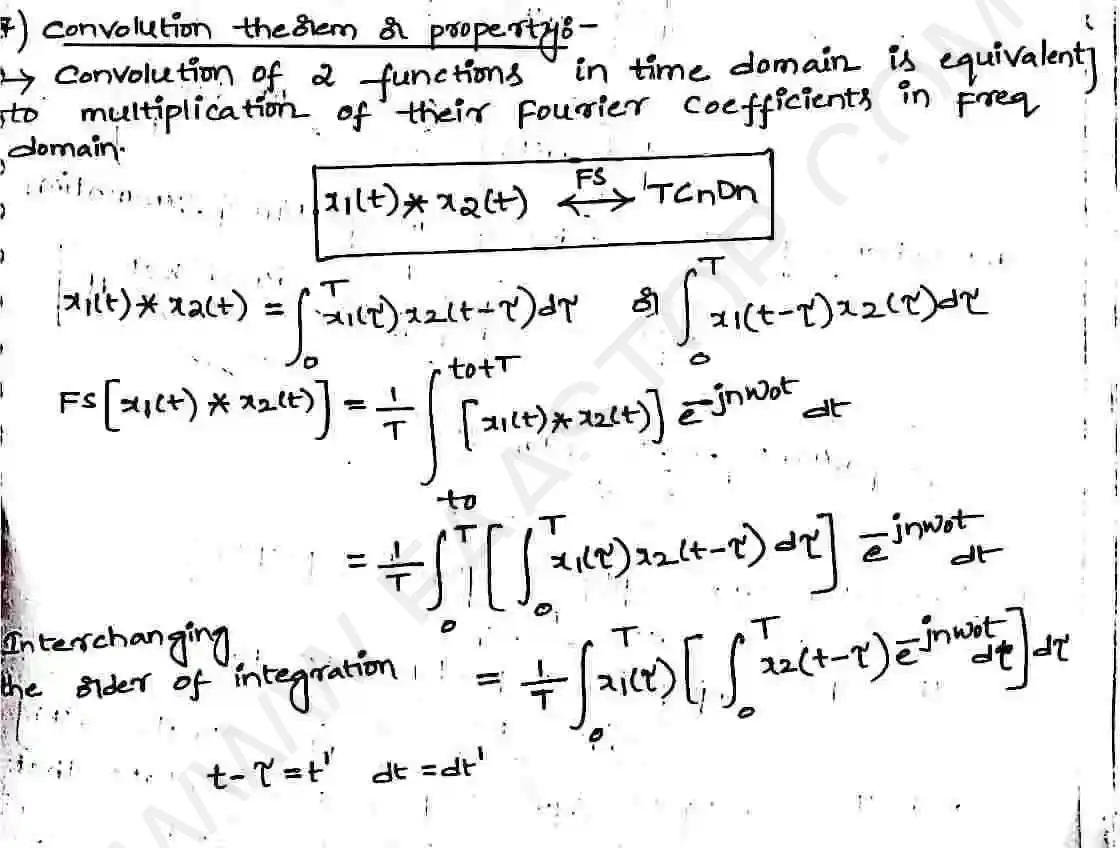 7) Convolution theorem or property:-
↦ Convolution of 2 functions in time domain is equivalent
to multiplication of their Fourier coefficients in Freq
domain.
x1(t) * x2(t) <-FS-> TCnDn
x1(t) * x2(t) = ∫₀ᵀ x1(τ) x2(t-τ)dτ or ∫₀ᵀ x1(t-τ) x2(τ)dτ
FS[x1(t) * x2(t)] = 1/T ∫_{to}^{to+T} [x1(t) * x2(t)] e^{-jnωot} dt
= 1/T ∫₀ᵀ [∫₀ᵀ x1(τ) x2(t-τ) dτ] e^{-jnωot} dt
Interchanging
the order of integration = 1/T ∫₀ᵀ x1(τ) [∫₀ᵀ x2(t-τ) e^{-jnωot} dt] dτ
t-τ = t' dt = dt'